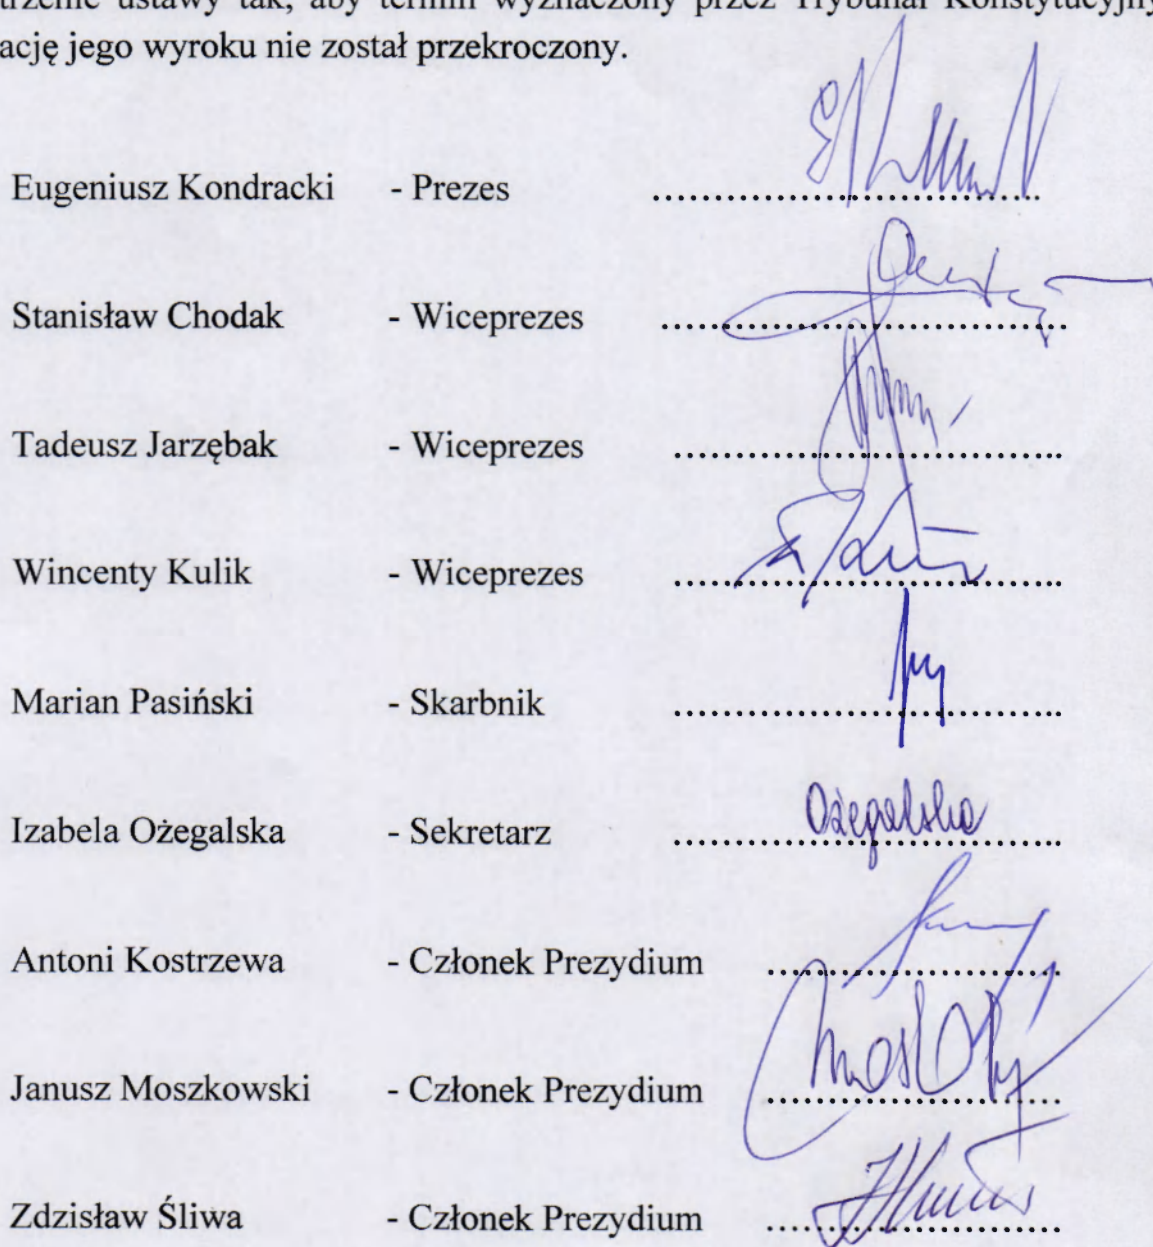 ustawy tak, aby termin wyznaczony przez Trybunał Konstytucyjny
ację jego wyroku nie został przekroczony.
Eugeniusz Kondracki - Prezes ........................................
Stanisław Chodak - Wiceprezes ........................................
Tadeusz Jarzębak - Wiceprezes ........................................
Wincenty Kulik - Wiceprezes ........................................
Marian Pasiński - Skarbnik ........................................
Izabela Ożegalska - Sekretarz ........................................
Ożegalska
Antoni Kostrzewa - Członek Prezydium ..............................
Janusz Moszkowski - Członek Prezydium ..............................
Zdzisław Śliwa - Członek Prezydium ..............................